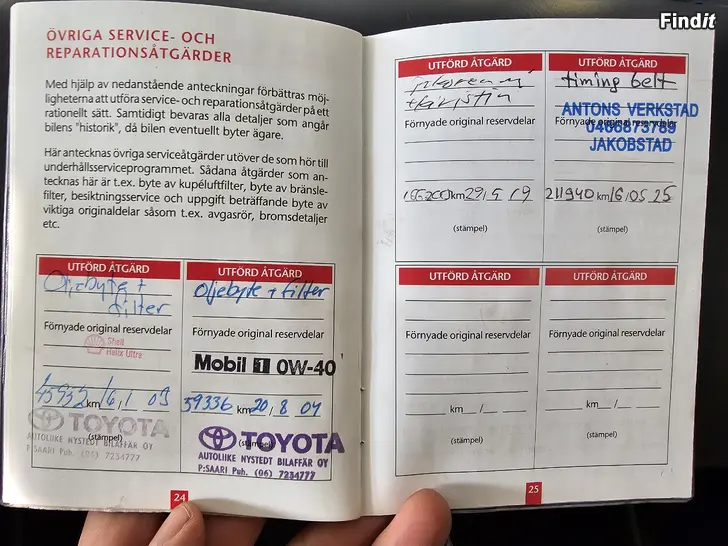 Findit
ÖVRIGA SERVICE- OCH
REPARATIONSÅTGÄRDER
Med hjälp av nedanstående anteckningar förbättras möj-
ligheterna att utföra service- och reparationsåtgärder på ett
rationellt sätt. Samtidigt bevaras alla detaljer som angår
bilens "historik", då bilen eventuellt byter ägare.
Här antecknas övriga serviceåtgärder utöver de som hör till
underhållsserviceprogrammet. Sådana åtgärder som an-
tecknas här är t.ex. byte av kupéluftfilter, byte av bränsle-
filter, besiktningsservice och uppgift beträffande byte av
viktiga originaldelar såsom t.ex. avgasrör, bromsdetaljer
etc.
UTFÖRD ÅTGÄRD
Oljebyte +
filter
Förnyade original reservdelar
Shell
Helix Ultra
km 16/1 03
(stämpel)
TOYOTA
AUTOLIIKE NYSTEDT BILAFFÄR OY
P:SAARI Puh. (06) 7234777
UTFÖRD ÅTGÄRD
Oljebyte + filter
Förnyade original reservdelar
Mobil 1 0W-40
59336 km 20/8 04
(stämpel)
TOYOTA
AUTOLIIKE NYSTEDT BILAFFÄR OY
P:SAARI Puh. (06) 7234777
24
UTFÖRD ÅTGÄRD
Förnyade original reservdelar
km 29/5 19
(stämpel)
UTFÖRD ÅTGÄRD
timing belt
ANTONS VERKSTAD
Förnyade original reservdelar
0466873789
JAKOBSTAD
211940 km 16/05 25
(stämpel)
UTFÖRD ÅTGÄRD
Förnyade original reservdelar
km /
(stämpel)
UTFÖRD ÅTGÄRD
Förnyade original reservdelar
km /
(stämpel)
25